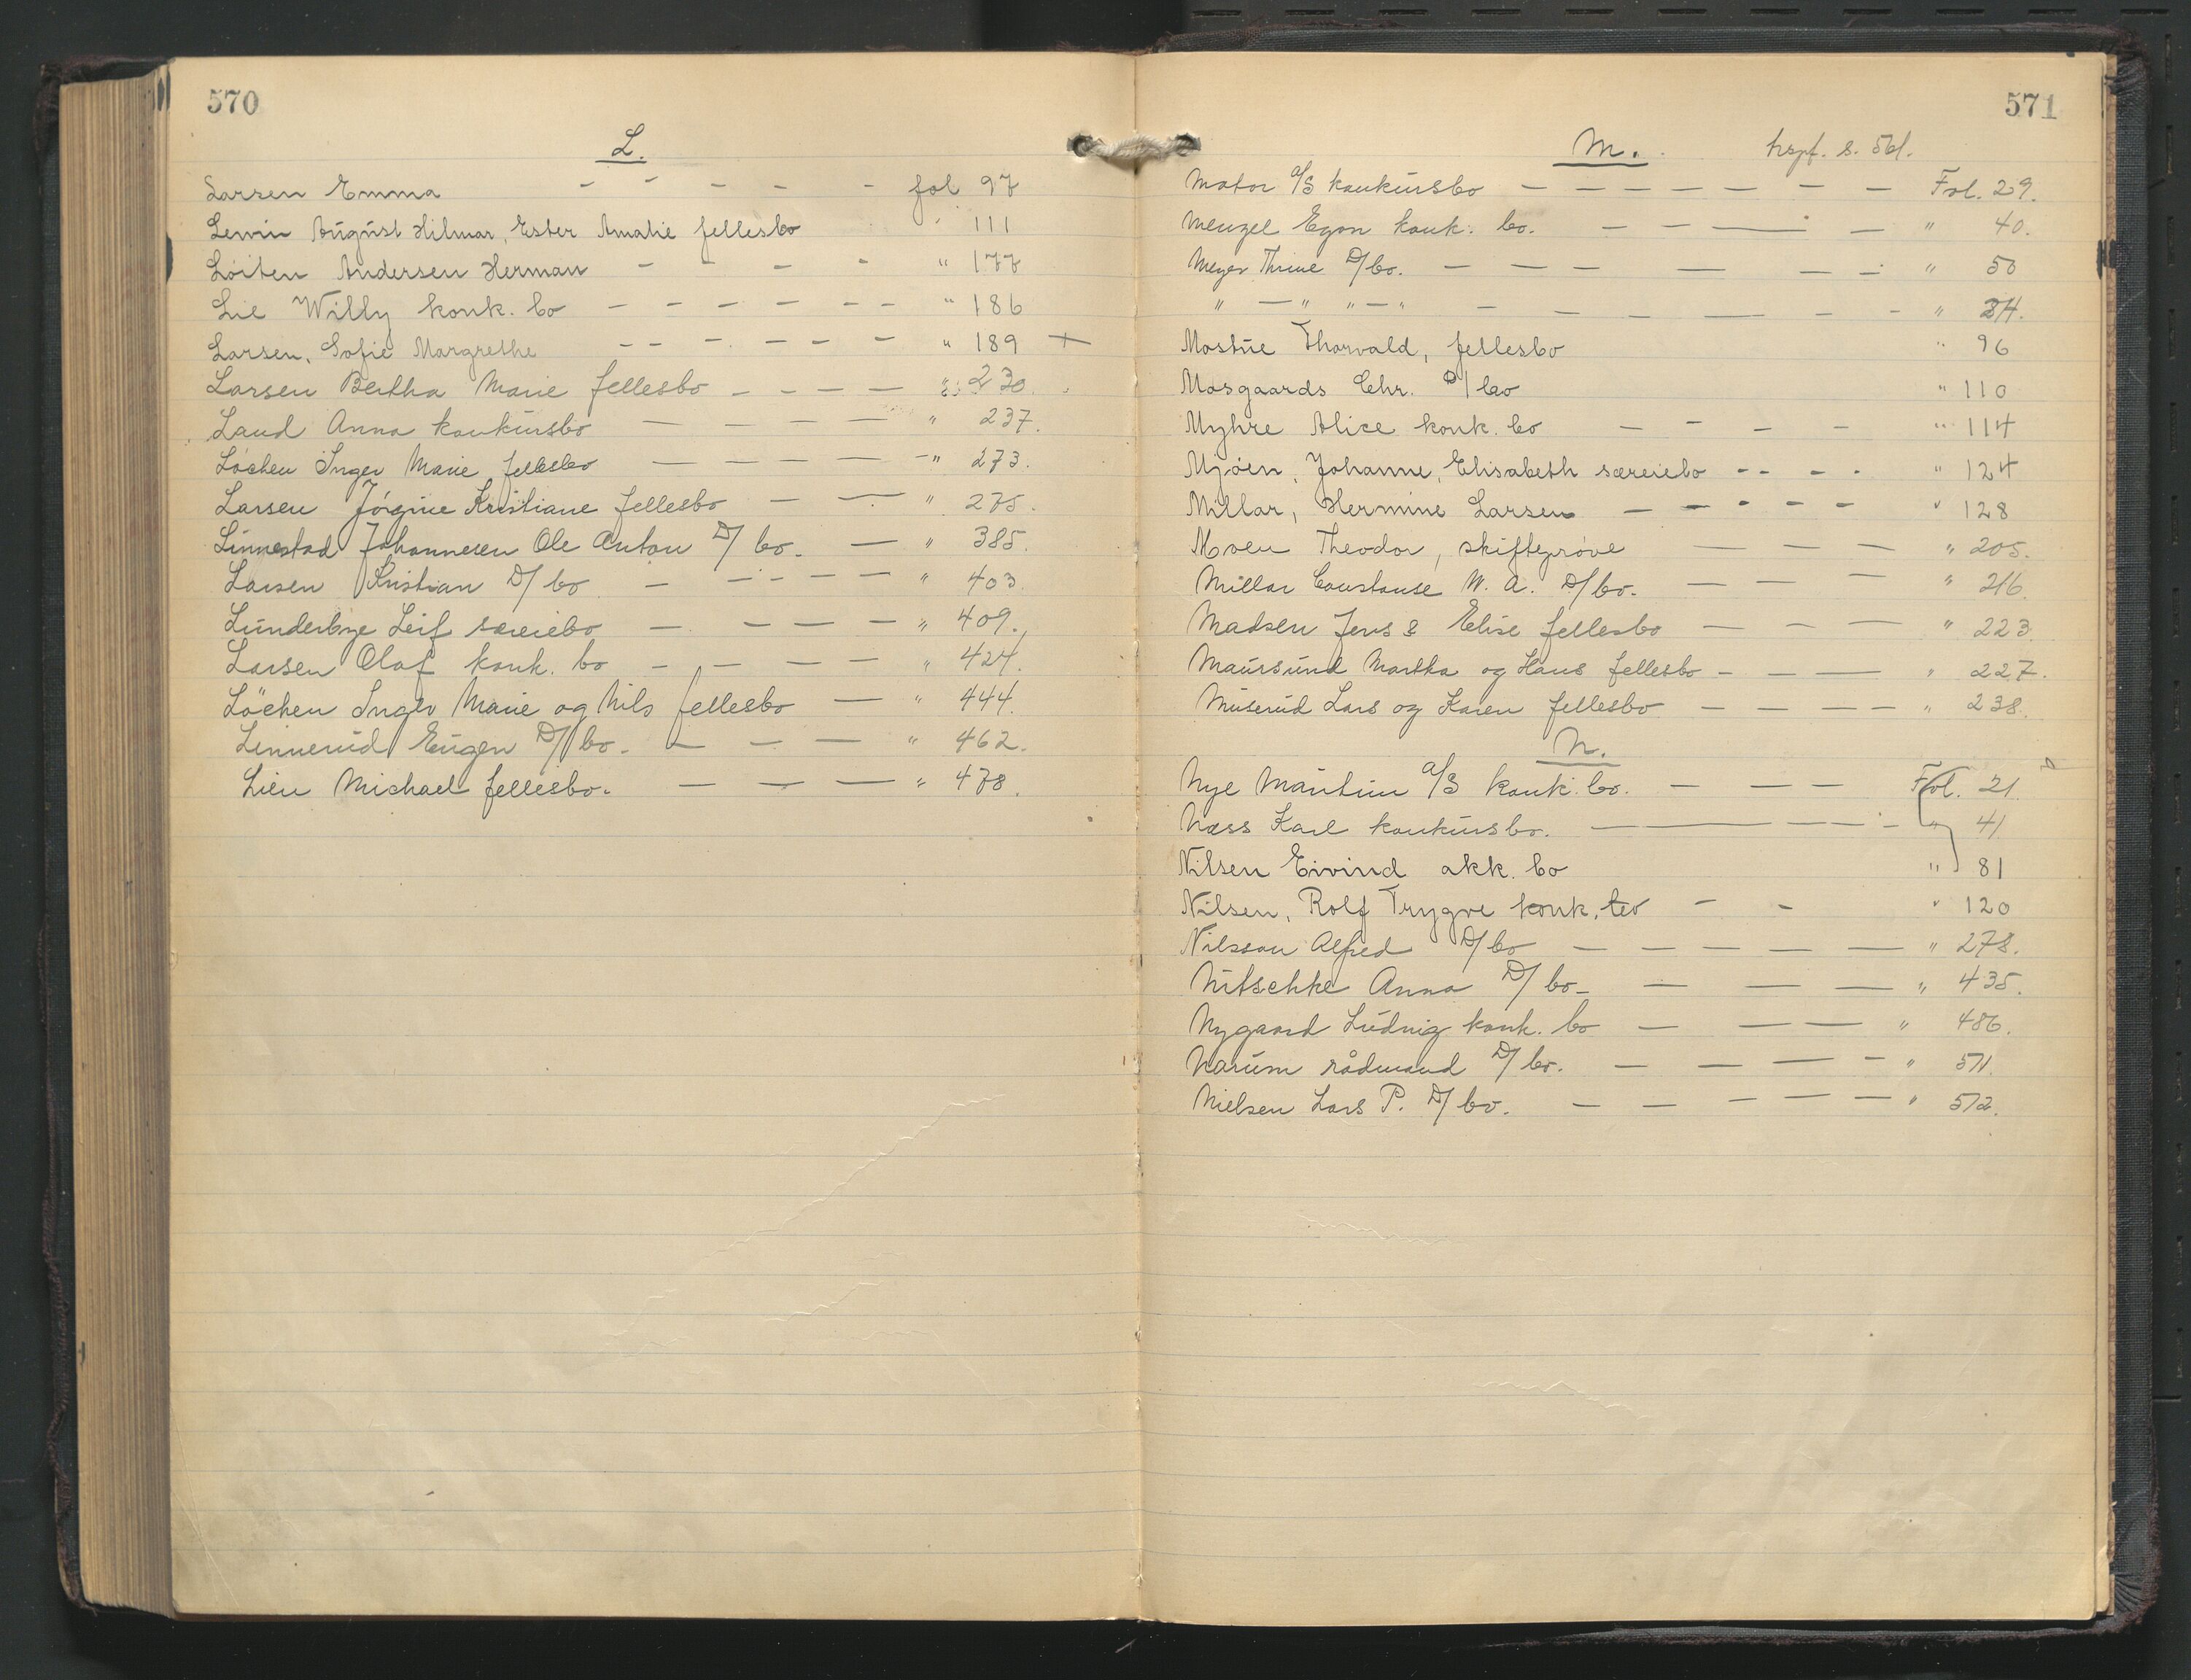 570
L.
Larsen Emma - - - - - fol 97
Lewin August Hilmar, Ester Amalie fellesbo " 111
Löiten Andersen Herman - - - - " 177
Lie Willy konk. bo - - - - - - " 186
Larsen, Sofie Margrethe - - - - - - " 189 +
Larsen Bertha Marie fellesbo - - - - " 230.
Laud Anna konkursbo - - - - " 237.
Löchen Inger Marie fellesbo - - - - - " 273.
Larsen Jörgine Kristiane fellesbo - - " 275.
Linnestad Johannesen Ole Anton D/bo. - " 385.
Larsen Kristian D/bo - - - - - " 403.
Lunderbye Leif særeiebo - - - - " 409.
Larsen Olaf konk. bo - - - - " 424.
Löchen Inger Marie og Nils fellesbo - " 444.
Linnerud Eugen D/bo. - - - " 462.
Lien Michael fellesbo. - - - " 478.
571
M. s. 561.
Motor A/S konkursbo - - - - - - - - Fol. 29.
Menzel Egon konk. bo. - - - - " 40.
Meyer Thrine D/bo. - - - - - - " 50
" - " " - " - - - - - - " 84.
Mostue Thorvald, fellesbo " 96
Mosgaards Chr. D/bo " 110
Myhre Alice konk. bo - - - - " 114
Mjöen, Johanne, Elisabeth særeiebo - - - - " 124
Millar, Hermine Larsen - - - - - " 128
Moen Theodor, skifteprøve - - - " 205.
Millar Constanse W. A. D/bo. - - - " 216.
Madsen Jens & Elise fellesbo - - - " 223.
Maursund Martha og Hans fellesbo - - - " 227.
Muserud Lars og Karen fellesbo - - - - " 238.
N.
Nye Maritim A/S konk. bo. - - - Fol. 21.
Næss Karl konkursbo. - - - - " 41
Nilsen Eivind akk. bo " 81
Nilsen, Rolf Trygve konk. bo - - " 120
Nilsson Alfred D/bo - - - - - " 278.
Nitschke Anna D/bo - - - - " 435.
Nygaard Ludvig konk. bo - - - " 486.
Narum rådmand D/bo. - - - - " 511.
Nielsen Lars P. D/bo. - - - - - " 512.